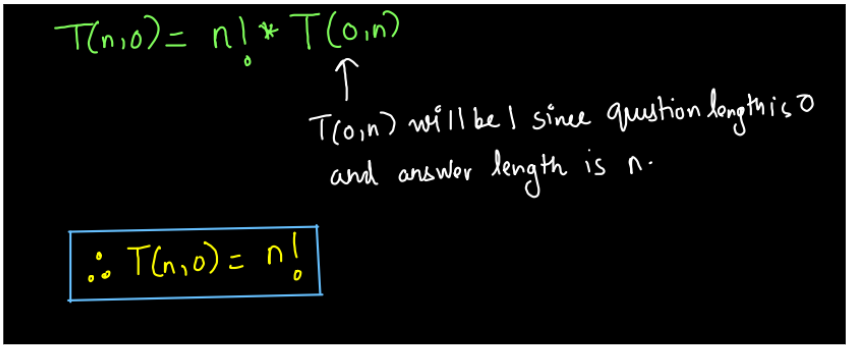 T(n,0) = n! * T(0,n)
↑
T(0,n) will be 1 since question length is 0
and answer length is n.
∴ T(n,0) = n!